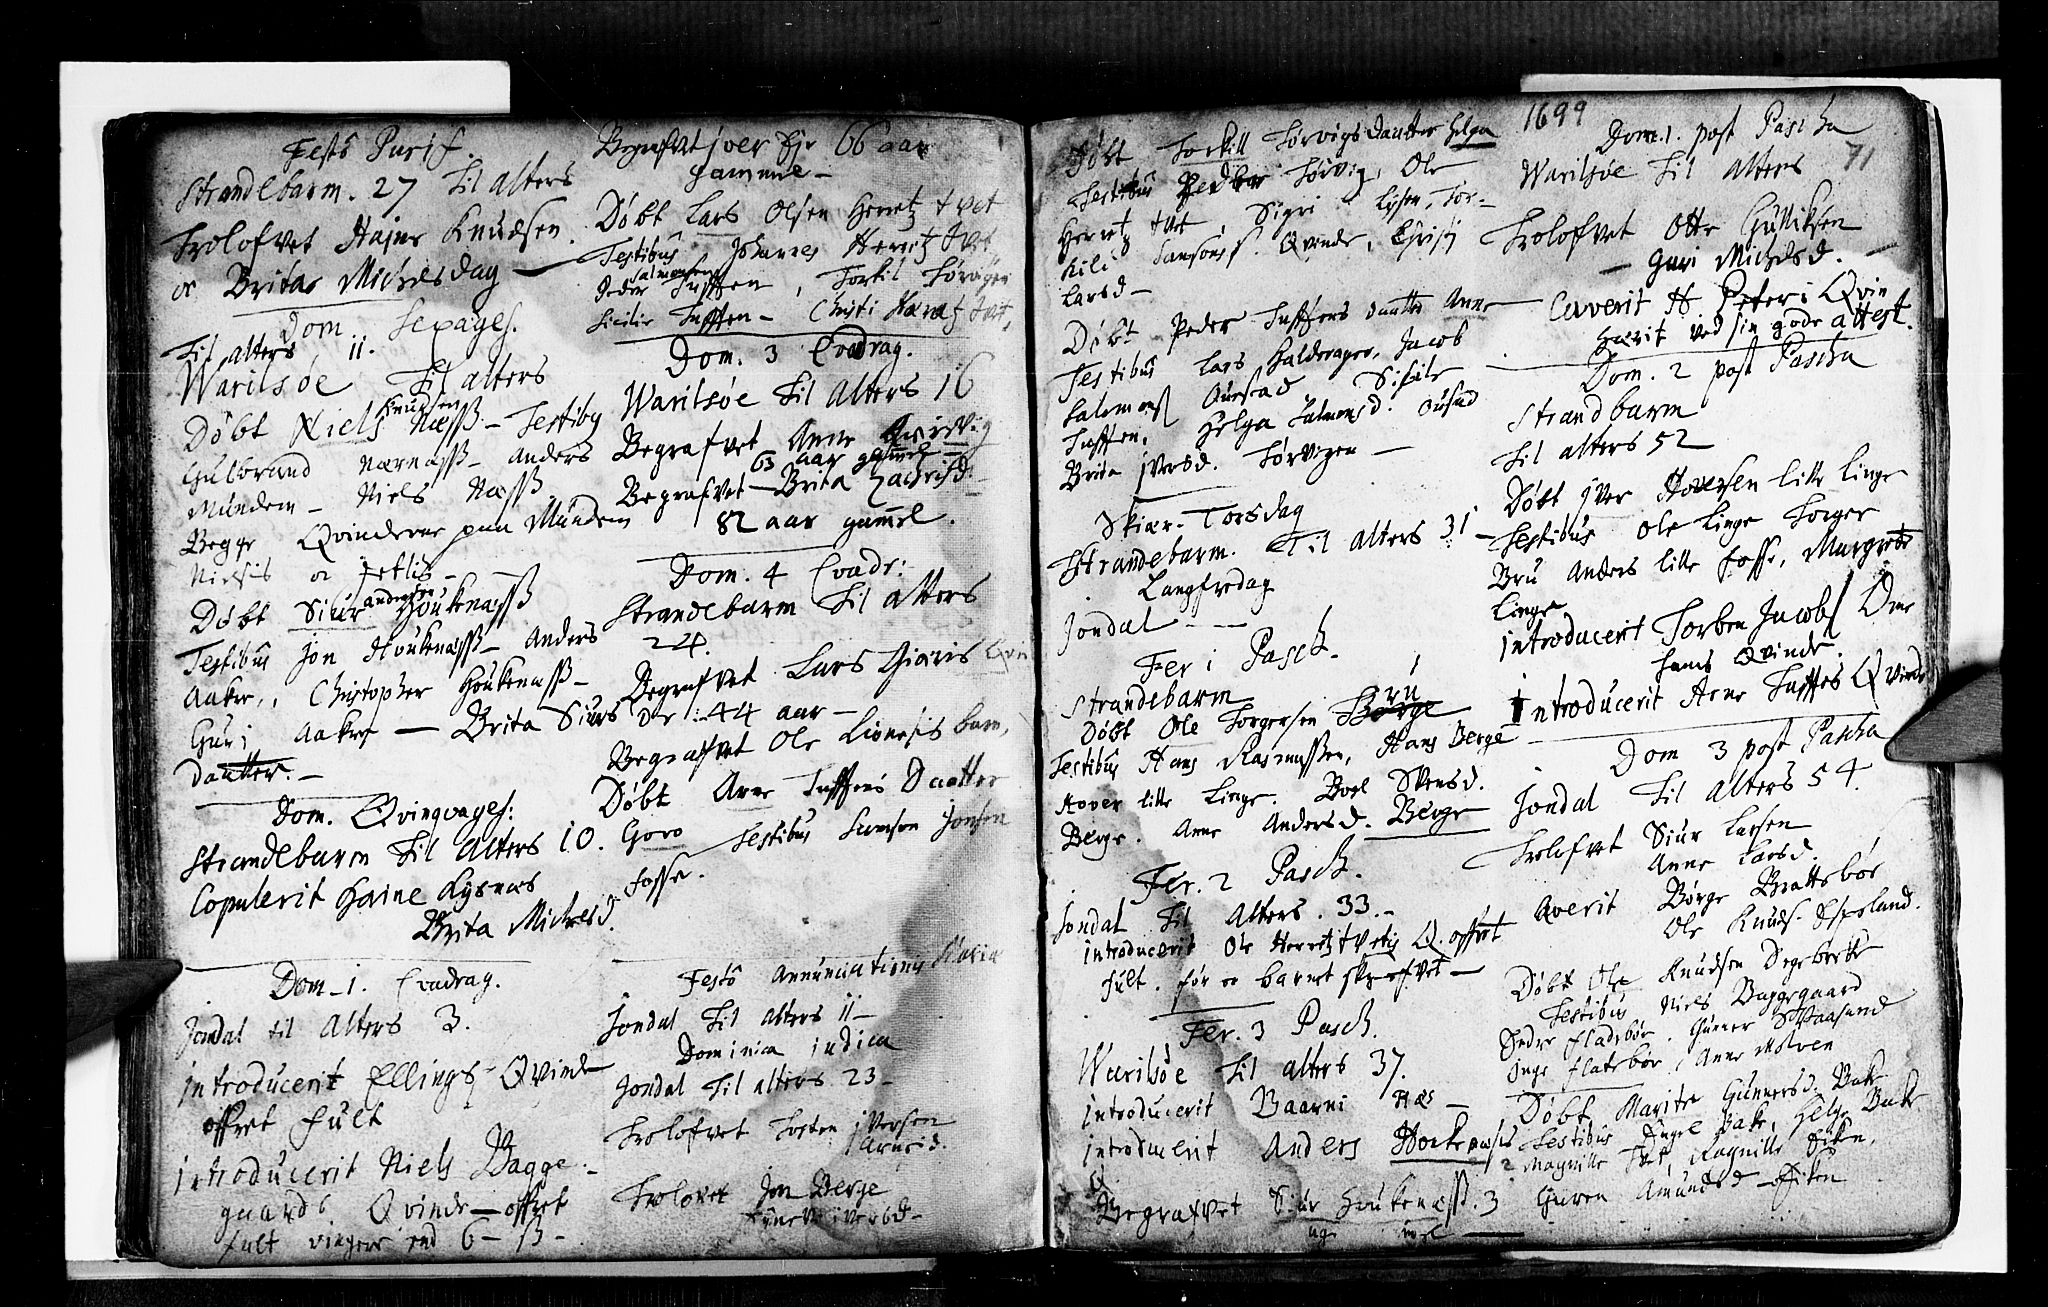 Festo Purif.
Strandebarm. 27 til Alters
Trolofvet Hajne Knudsen
oc Brita Michelsdag —
Dom. Sexages.
til alters 11.
Warilsøe til alters
Døbt Niels Knudsen Næss – Testib9
Gulbrand Nærnæss – Anders
Mundem – Niels Næss
Begge Qvinderne paa Mundem
Døbt Siur andersen Houkenæss
Testibus Jon Houkenæss – Anders
Aaker, Christopher Houkenæss –
Guri Aaker — Brita Siurs
daatter. –
Dom. Qvinqvages:
Strandebarm til Alters 10.
Copulerit Haine Kysnæs
Brita Michelsd.
Dom. 1. Qvadrag.
Jondal til Alters 3.
introducerit Ellings Qvinde
offret fult
introducerit Niels Bagge-
gaards Qvinde — offret
fult ringere end 6 – ß –
Begrafvet jver Eje 66 aar
gammel –
Døbt Lars Olsen Herretztvet
Testibus Johannes Herretztvet
Peder Salmonsen Tufften, Torkil Tørvigen
Sicilie Tufften – Christi Herretztvet,
Dom. 3 Qvadrag.
Warilsøe til Alters 16
Begrafvet Anne Qvirvig
63 aar gammel –
Begrafvet — Brita Zachrisd.
82 aar gamel.
Dom. 4 Qvadr:
Strandebarm til alters
24.
Begrafvet Lars Giæris
44 aar –
Begrafvet Ole Lionesis barn,
Døbt Arne Tufftens Daatter
Goro Testibus Samson Jonsen
Fosse.
Festo Annunciationis Mariæ
Jondal til alters 11 –
Dominica judica
Jondal til alters 23 –
Trolofvet Tosten jversen
Trolovet Jon Berge
jversd –
1699
71
Døbt Torkill Tørvigs daatter Helga
Testibus Peder Tørvig, Ole
Herretztvet Sigri Lysen, Tor-
kild Samsons Qvinde, Christi
Larsd –
Døbt Peder Tufftens daatter Anne
Testibus Lars Halderager, Jacob
Salomons Ouestad Sisile
Tufften, Helga Salmonsd. Ousted
Brita jversd. Tørvigen —
Skiær-Torsdag
Strandebarm. Til Alters 31 –
Langfredag
Jondal – –
Fer 1 Pasch.
Strandebarm
Døbt Ole Torgersen Bru
Testibus Hans Rasmussen, Hans Berge
Hover lille Linge. Boel Svensd.
Berge. Anne Andersd. Berge
Fer. 2 Pasch.
Jondal til Alters. 33. –
introducerit Ole Herretztvetis Q. offret
fult. før oc barnet
Fer. 3 Pasch.
Warilsøe til alters 37.
introducerit Baarni Næs —
introducerit Anders Houkenæsis
Q
Begrafvet Siur Houkenæss. 3
uger
Dom. 1. post Pascha
Warilsøe til alters
Trolofvet Otte Gulliksen
— Guri Michelsd. –
Caverit H Peter i Qvin
hærit ved sin gode attest.
Dom. 2 post Pascha
Strandbarm
til alters 52
Døbt jver Hoversen lille Linge
Testibus Ole Linge Torger
Bru Anders lille Fosse, Margrete
Linge
introducerit Torben Jacobs Ome
hans Qvinde.
Introducerit Arne Tufftes Qvinde
Dom 3 post Pascha
Jondal til Alters 54.
Trolofvet Siur Larsen
Anne Larsd.
Caverit Børge Brattebør
Ole Knuds. Espeland.
Døbt Ole Knudsen Degebrekke
Testibus Niels Baggegaard
Peder Fladebør. Gunner Straasund
Inge Flatebør, Anne Molven
Døbt Marite Gunnersd. Bake
Testibus Engel Bake, Helge Bake
Magnille Tvet, Ragnille Eken,
Guren Amundsd – Eiken